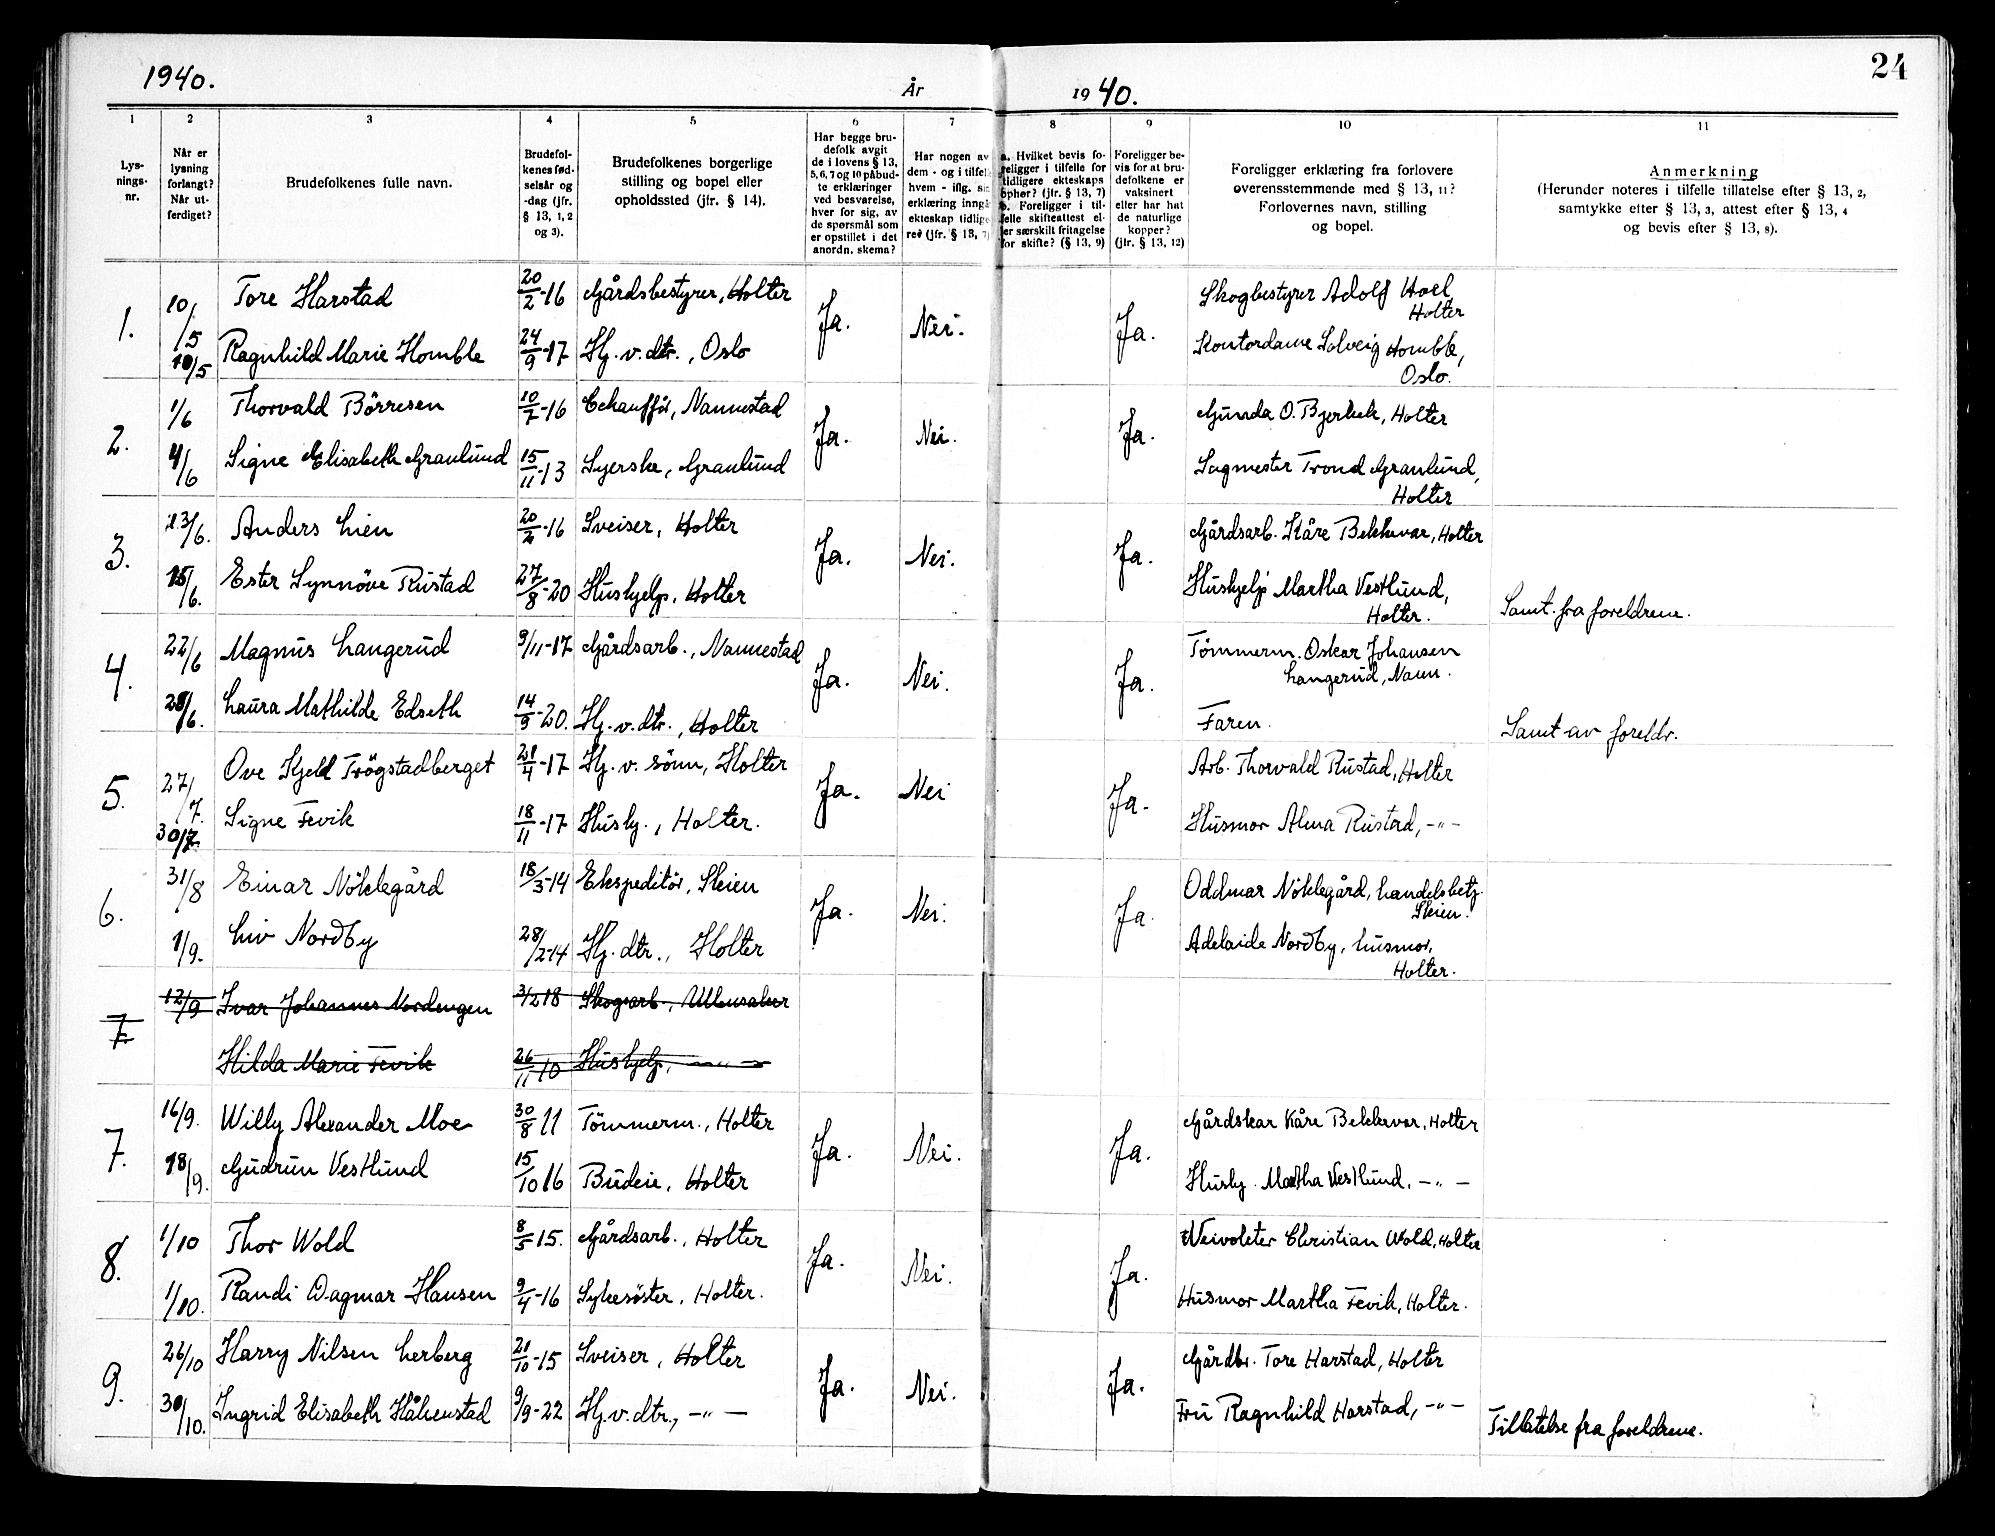 24
1940.
År
1940.
1 2 3 4 5 6 7 8 9 10 11
Lys-
nings-
nr.
Når er
lysning
forlangt?
Når ut-
ferdiget?
Brudefolkenes fulle navn.
Brudefol-
kenes fød-
selsår og
-dag (jfr.
§ 13, 1, 2
og 3).
Brudefolkenes borgerlige
stilling og bopel eller
opholdssted (jfr. § 14).
Har begge bru-
defolk avgit
de i lovens § 13,
5, 6, 7 og 10 påbud-
te erklæringer
ved besvarelse,
hver for sig, av
de spørsmål som
er opstillet i det
anordn. skema?
Har nogen av
dem - og i tilfelle
hvem - iflg. sin
erklæring inngå
ekteskap tidlige
re? (jfr. § 13, 7)
a. Hvilket bevis fo-
religger i tilfelle for
tidligere ekteskaps
ophør? (jfr. § 13, 7)
b. Foreligger i til-
felle skifteattest el-
ler særskilt fritagelse
for skifte? (§ 13, 9)
Foreligger be-
vis for at bru-
defolkene er
vaksinert
eller har hat
de naturlige
kopper?
(jfr. § 13, 12)
Foreligger erklæring fra forlovere
overensstemmende med § 13, 11?
Forlovernes navn, stilling
og bopel.
Anmerkning
(Herunder noteres i tilfelle tillatelse efter § 13, 2,
samtykke efter § 13, 3, attest efter § 13, 4
og bevis efter § 13, 8).
1. 10/5 Tore Harstad 20/2-16 Gårdsbestyrer, Holter Ja. Nei. Ja. Skogbestyrer Adolf Hoel,
Holter
10/5 Ragnhild Marie Homble 24/9-17 Hj. v. dtr., Oslo Kontordame Solveig Homble,
Oslo.
2. 1/6 Thorvald Börresen 10/7-16 Chaufför, Nannestad Ja. Nei. Ja. Gunda O. Bjerkek, Holter
4/6 Signe Elisabeth Granlund 15/11-13 Syerske, Granlund Sagmester Trond Granlund,
Holter
3. 13/6. Anders Lien 20/2-16 Sveiser, Holter Ja. Nei. Ja. Gårdsarb. Kåre Bekkevar, Holter
15/6. Ester Synnöve Rustad 27/8-20 Hushjelp, Holter Hushjelp Martha Vestlund,
Holter. Samt. fra foreldrene.
4. 22/6 Magnus Langerud 9/11-17 Gårdsarb., Nannestad Ja. Nei. Ja. Tömmerm. Oskar Johansen
Langerud, Nann.
28/6. Laura Mathilde Edseth 14/9-20. Hj. v. dtr., Holter Faren. Samt av foreldr.
5. 27/7. Ove Kjell Trögstadberget 21/4-17 Hj. v. sönn, Holter Ja. Nei Ja. Arb. Thorvald Rustad, Holter
30/7. Signe Fevik 18/11-17 Hushj., Holter. Husmor Alma Rustad, -"-
6. 31/8 Einar Nöklegård 18/3-14 Ekspeditör, Skien Ja. Nei. Ja. Oddmar Nöklegård, handelsbetj.
Skien.
1/9. Liv Nordby 28/2-14 Hj. dtr., Holter Adelaide Nordby, husmor,
Holter.
7. 12/9 Ivar Johannes Nordengen 3/2 18 Skogsarb., Ullensaker
Hilda Marie Fevik 26/11 10 Hushjelp, -"-
7. 16/9. Willy Alexander Moe 30/8 11 Tömmerm., Holter Ja. Nei. Ja. Gårdskar Kåre Bekkevar, Holter
18/9. Gudrun Vestlund 15/10 16 Budeie, Holter Hushj. Martha Vestlund, -"-
8. 1/10 Thor Wold 8/5-15. Gårdsarb., Holter Ja. Nei. Ja. Veivokter Christian Wold, Holter
1/10. Randi Dagmar Hansen 9/4-16 Sykesöster, Holter. Husmor Martha Fevik, Holter.
9. 26/10 Harry Nilsen Lerberg 21/10-15 Sveiser, Holter Ja. Nei. Ja. Gårdbr. Tore Harstad, Holter
30/10. Ingrid Elisabeth Håkenstad 9/9-22 Hj. v. dtr., -"- Fru Ragnhild Harstad, -"- Tillatelse fra foreldrene.